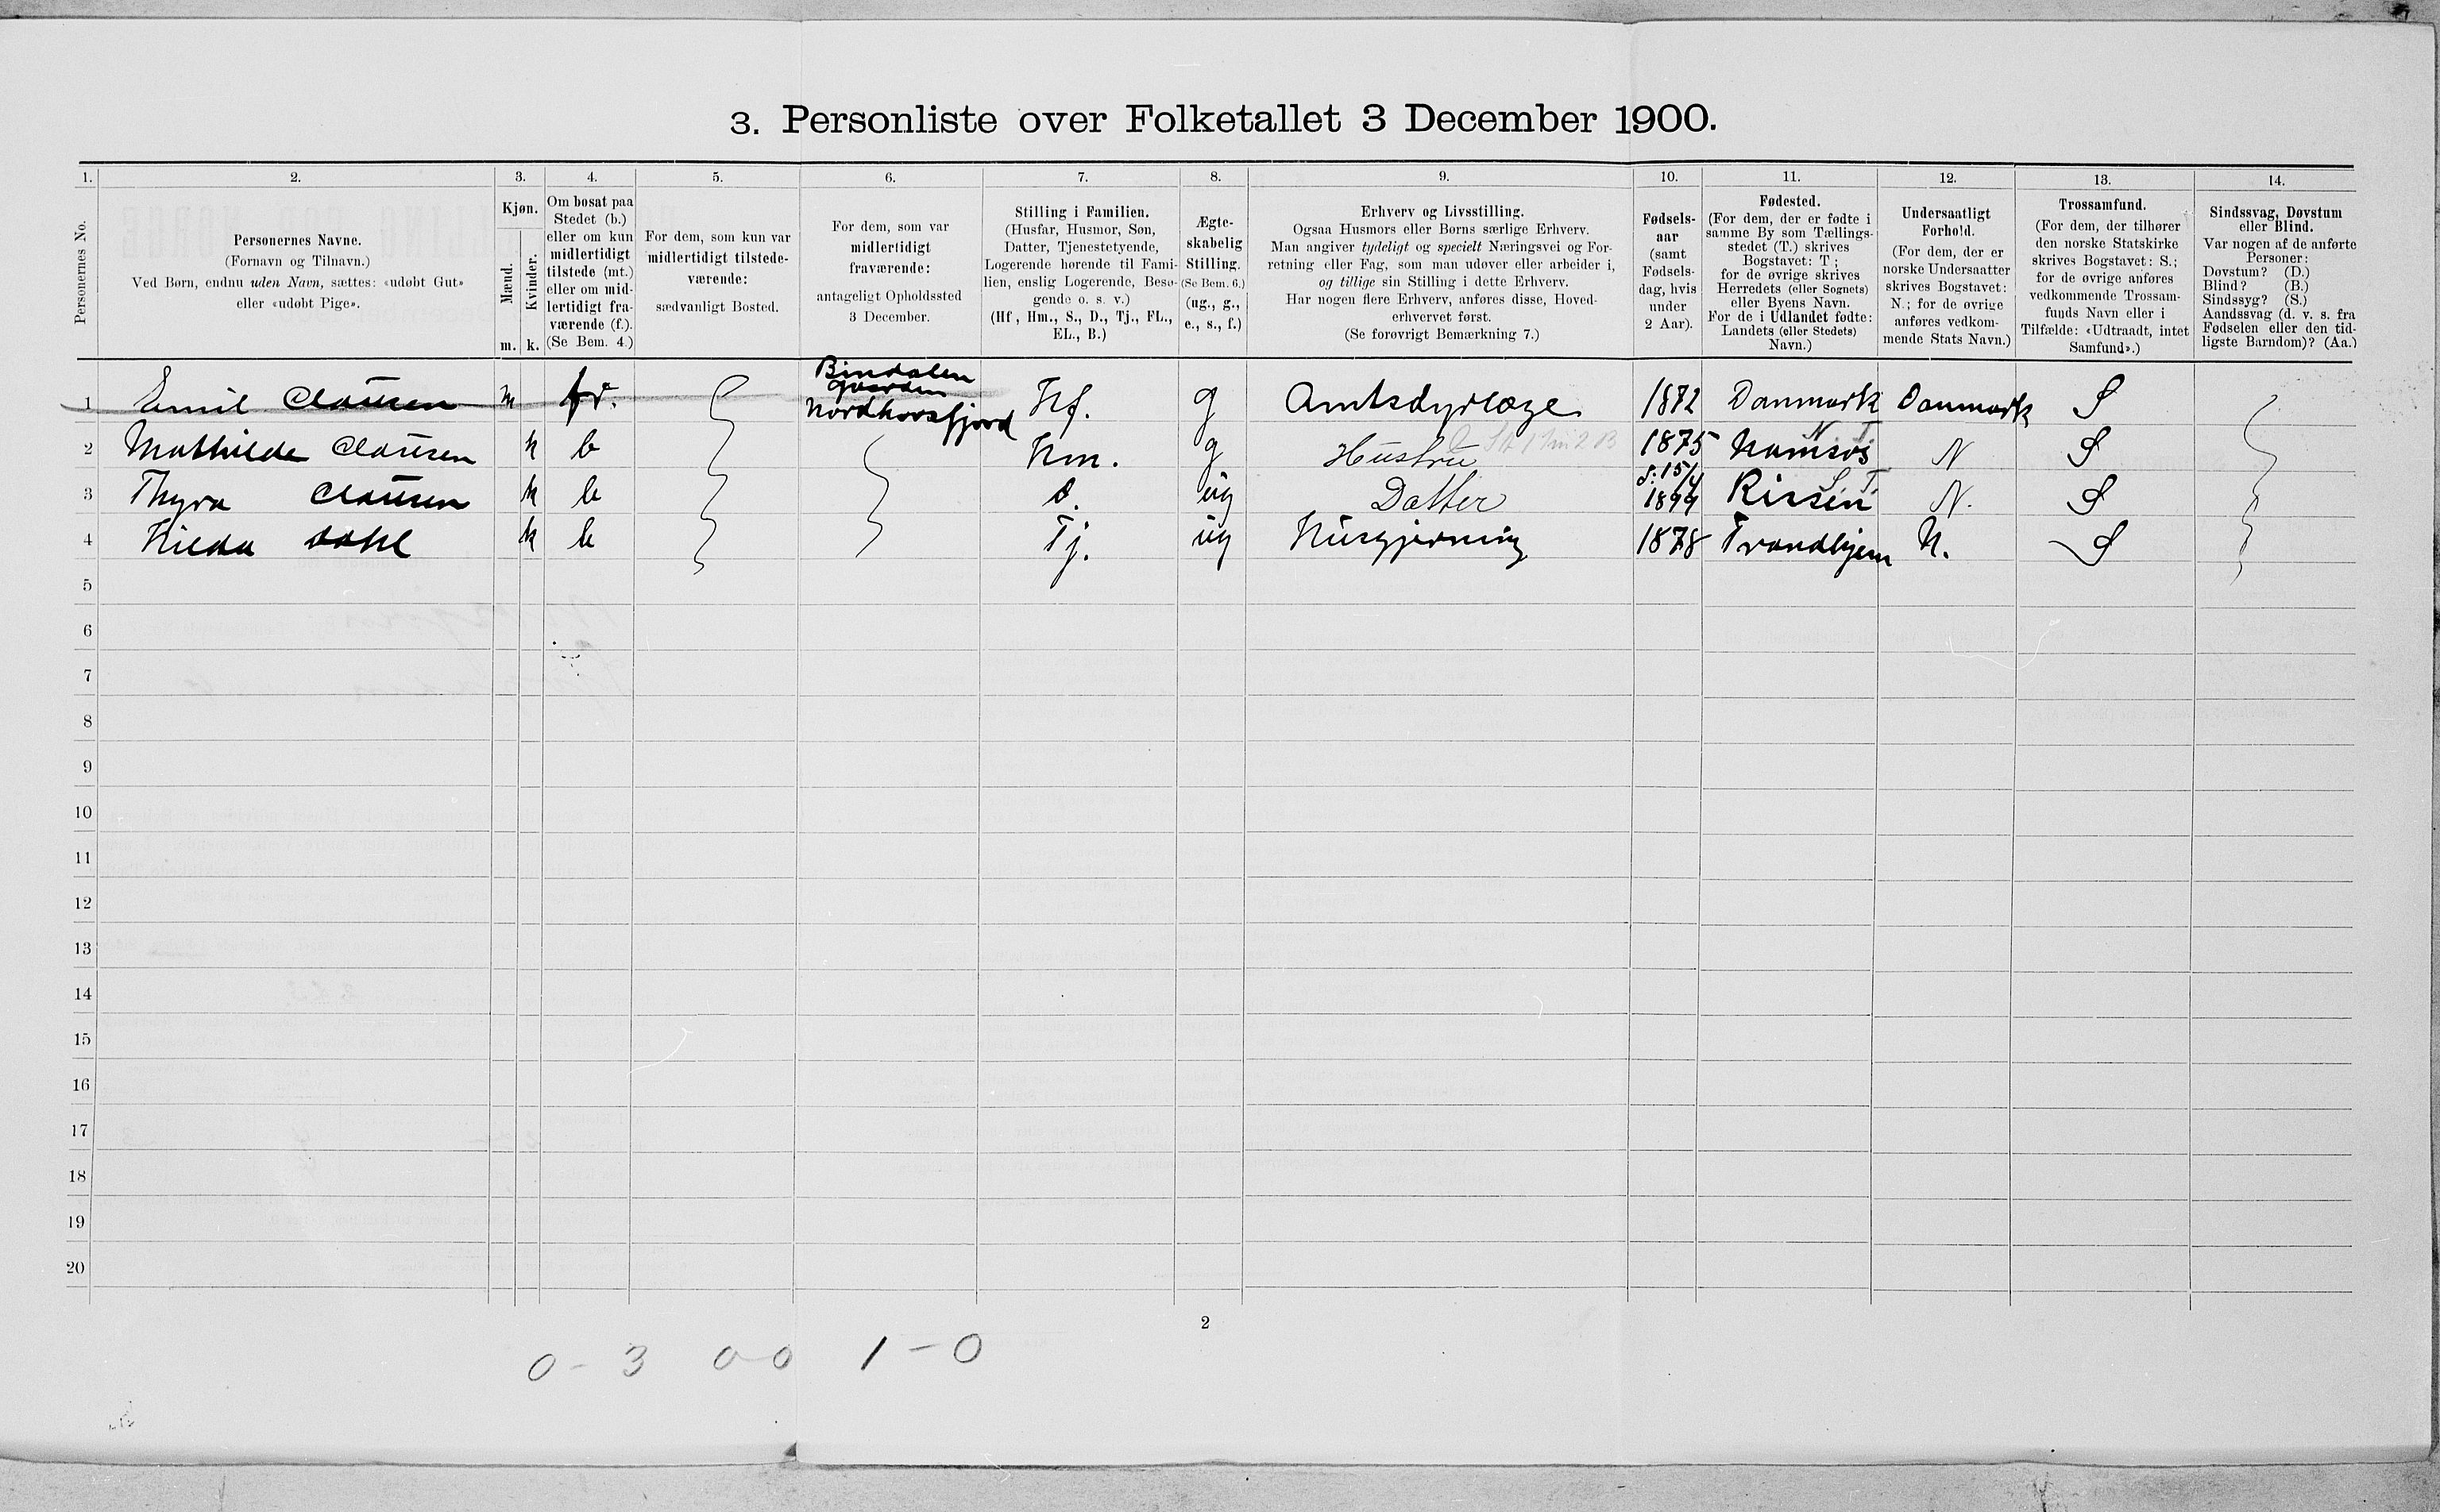 3. Personliste over Folketallet 3 December 1900.
1. 2. 3. 4. 5. 6. 7. 8. 9. 10. 11. 12. 13. 14.
Personernes No.
Personernes Navne.
(Fornavn og Tilnavn.)
Ved Børn, endnu uden Navn, sættes: «udøbt Gut»
eller «udøbt Pige».
Kjøn.
Mænd.
Kvinder.
m. k.
Om bosat paa
Stedet (b.)
eller om kun
midlertidigt
tilstede (mt.)
eller om mid-
lertidigt fra-
værende (f.).
(Se Bem. 4.)
For dem, som kun var
midlertidigt tilstede-
værende:
sædvanligt Bosted.
For dem, som var
midlertidigt
fraværende:
antageligt Opholdssted
3 December.
Stilling i Familien.
(Husfar, Husmor, Søn,
Datter, Tjenestetyende,
Logerende hørende til Fami-
lien, enslig Logerende, Besø-
gende o. s. v.)
(Hf, Hm., S., D., Tj., FL.,
EL., B.)
Ægte-
skabelig
Stilling.
(Se Bem. 6.)
(ug., g.,
e., s., f.)
Erhverv og Livsstilling.
Ogsaa Husmors eller Børns særlige Erhverv.
Man angiver tydeligt og specielt Næringsvei og For-
retning eller Fag, som man udøver eller arbeider i,
og tillige sin Stilling i dette Erhverv.
Har nogen flere Erhverv, anføres disse, Hoved-
erhvervet først.
(Se forøvrigt Bemærkning 7.)
Fødsels-
aar
(samt
Fødsels-
dag, hvis
under
2 Aar).
Fødested.
(For dem, der er fødte i
samme By som Tællings-
stedet (T.) skrives
Bogstavet: T;
for de øvrige skrives
Herredets (eller Sognets)
eller Byens Navn.
For de i Udlandet fødte:
Landets (eller Stedets)
Navn.)
Undersaatligt
Forhold.
(For dem, der er
norske Undersaatter
skrives Bogstavet:
N.; for de øvrige
anføres vedkom-
mende Stats Navn.)
Trossamfund.
(For dem, der tilhører
den norske Statskirke
skrives Bogstavet: S.;
for de øvrige anføres
vedkommende Trossam-
funds Navn eller i
Tilfælde: «Udtraadt, intet
Samfund».)
Sindssvag, Døvstum
eller Blind.
Var nogen af de anførte
Personer:
Døvstum? (D.)
Blind? (B.)
Sindssyg? (S.)
Aandssvag (d. v. s. fra
Fødselen eller den tid-
ligste Barndom)? (Aa.)
Bindalen
gaarden
1 Emil Claüsen m fr. Nordhorsfjord Hf. g Amtsdyrlæge 1872 Danmark Danmark S
2 Mathilde Claüsen k b Hm. g Hüstru 1875 Namsos N S
3 Thyra Claüsen k b d. üg Datter f. 15/4 1899 Rissen N. S
4 Hilda Dahl k b Tj. üg Hüsgjerning 1878 Trondhjem N. S
5
6
7
8
9
10
11
12
13
14
15
16
17
18
19
20
2
0 - 3 0-0 1 - 0